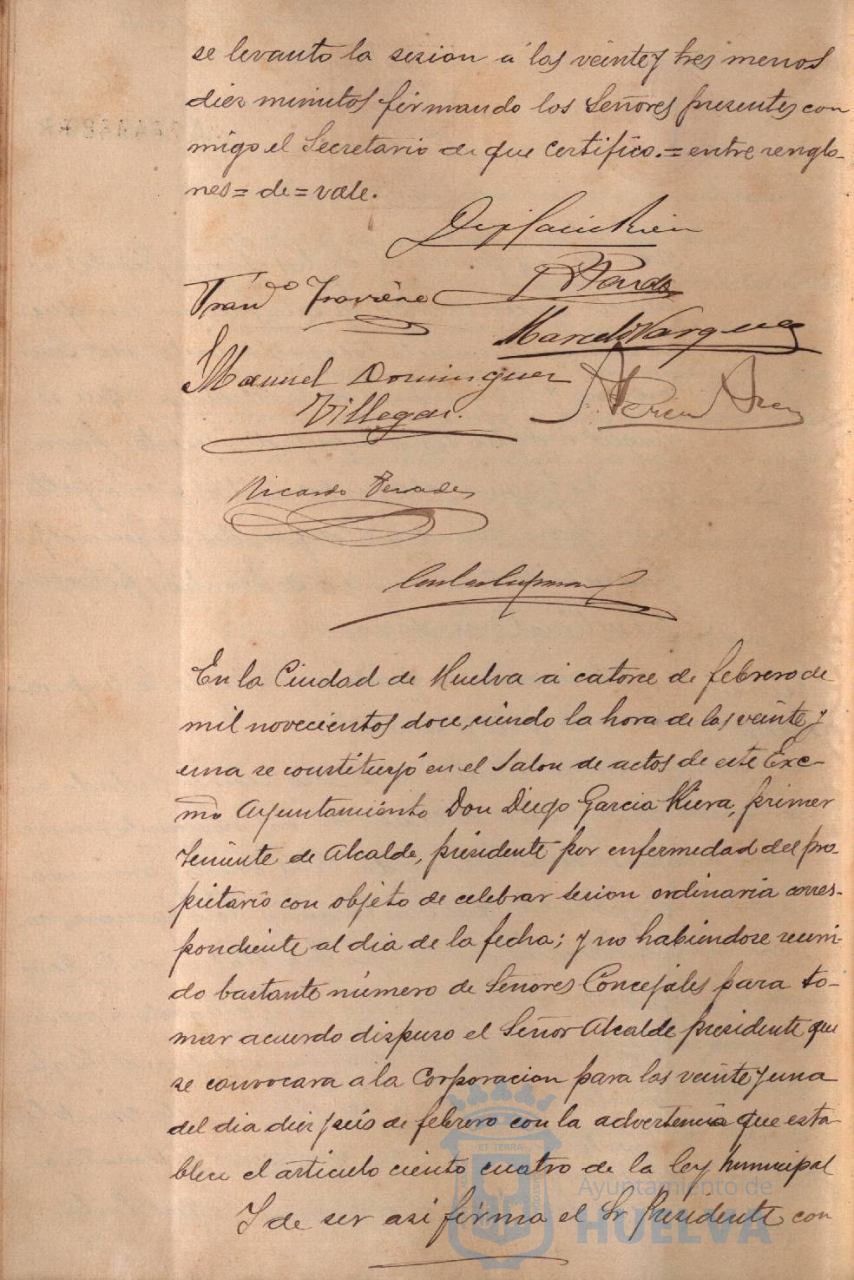 se levanto la sesion á las veinte y tres menos
diez minutos firmando los Señores presentes con
migo el Secretario de que certifico.=entre renglo-
nes=de=vale.
R Pardo
Marcelo Vazquez
Manuel Dominguez
Villegas.
Perez
Ricardo Terrades
En la Ciudad de Huelva á catorce de febrero de
mil novecientos doce, siendo la hora de las veinte y
una se constituyó en el Salon de actos de este Exc-
mo Ayuntamiento Don Diego Garcia Riera, primer
teniente de Alcalde, presidente por enfermedad del pro-
pietario con objeto de celebrar sesion ordinaria corres-
pondiente al dia de la fecha; y no habiendose reuni-
do bastante número de Señores Concejales para to-
mar acuerdo dispuso el Señor Alcalde presidente que
se convocara á la Corporacion para las veinte y una
del dia diez y seis de febrero con la advertencia que esta-
blece el articulo ciento cuatro de la ley Municipal
Y de ser asi firma el Sr Presidente con
ET TERRA
Ayuntamiento de
HUELVA